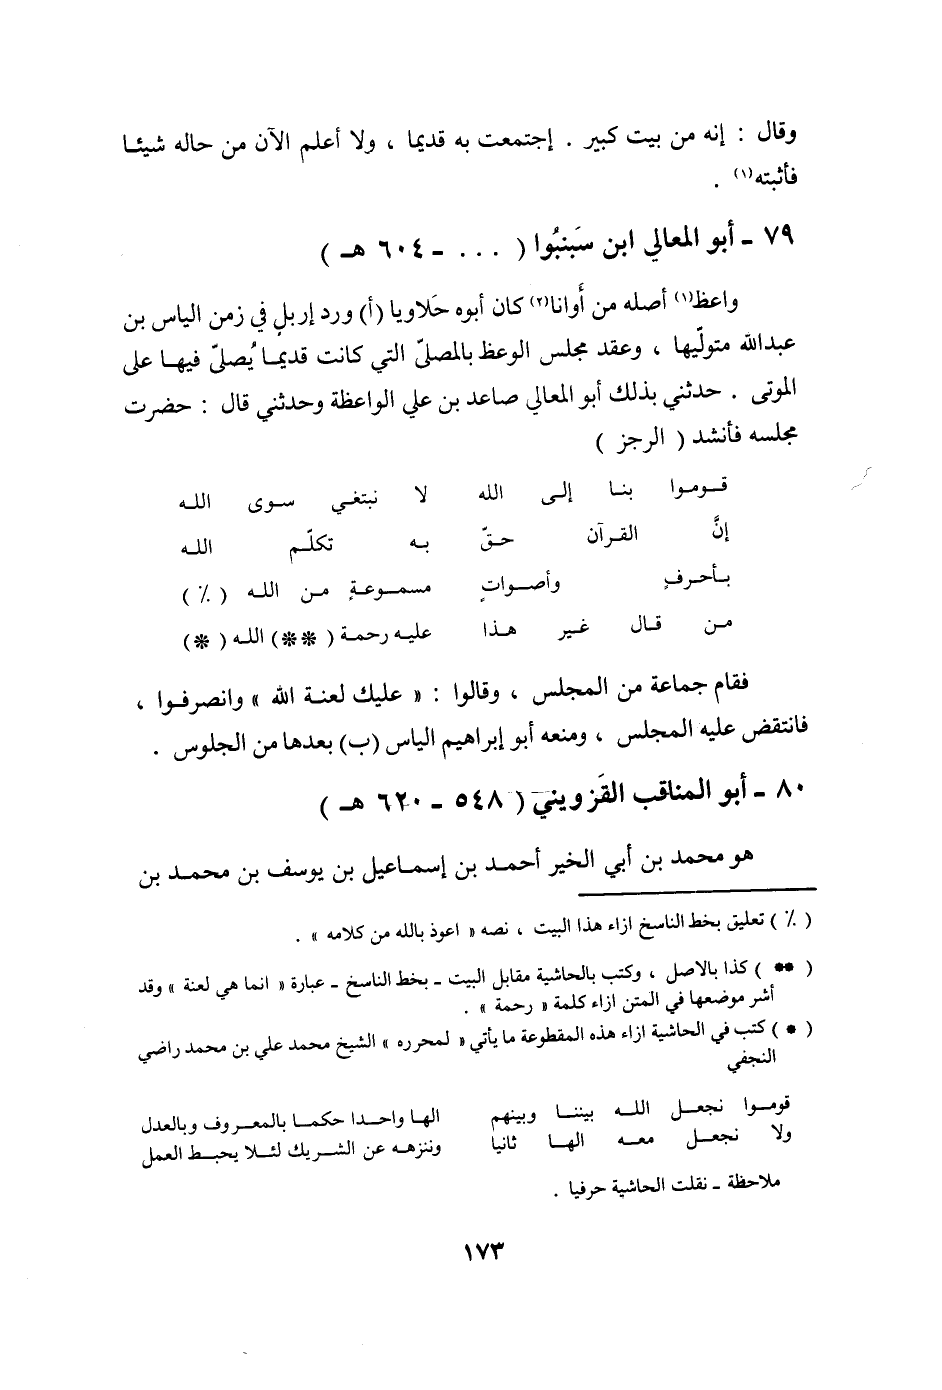 وقال : إنه من بيت كبير . إجتمعت به قديما ، ولا أعلم الآن من حاله شيئا
فأثبته(١) .
٧٩ ـ أبو المعالي ابن سَبَنبُوا ( . . . ـ ٦٠٤ هـ )
واعظ(١) أصله من أَوانا(٢) كان أبوه حَلاويا (أ) ورد إربل في زمن الياس بن
عبدالله متولّيها ، وعقد مجلس الوعظ بالمصلىّ التي كانت قديما يُصلىّ فيها على
الموتى . حدثني بذلك أبو المعالي صاعد بن علي الواعظة وحدثني قال : حضرت
مجلسه فأنشد ( الرجز )
قوموا بنا إلى الله لا نبتغي سوى الله
إنَّ القرآن حقّ به تكلّم الله
بأحرفٍ وأصواتٍ مسموعةٍ من الله ( ٪ )
من قال غير هذا عليه رحمة ( ** ) الله ( * )
فقام جماعة من المجلس ، وقالوا : « عليك لعنة الله » وانصرفوا ،
فانتقض عليه المجلس ، ومنعه أبو إبراهيم الياس (ب) بعدها من الجلوس .
٨٠ ـ أبو المناقب القَزويني ( ٥٤٨ ـ ٦٢٠ هـ )
هو محمد بن أبي الخير أحمد بن إسماعيل بن يوسف بن محمد بن
( ٪ ) تعليق بخط الناسخ ازاء هذا البيت ، نصه « اعوذ بالله من كلامه » .
( ** ) كذا بالاصل ، وكتب بالحاشية مقابل البيت ـ بخط الناسخ ـ عبارة « انما هي لعنة » وقد
أشر موضعها في المتن ازاء كلمة « رحمة » .
( * ) كتب في الحاشية ازاء هذه المقطوعة ما يأتي « لمحرره » الشيخ محمد علي بن محمد راضي
النجفي
قوموا نجعل الله بيننا وبينهم الها واحدا حكما بالمعروف وبالعدل
ولا نجعل معه الها ثانيا وننزهه عن الشريك لئلا يحبط العمل
ملاحظة ـ نقلت الحاشية حرفيا .
١٧٣